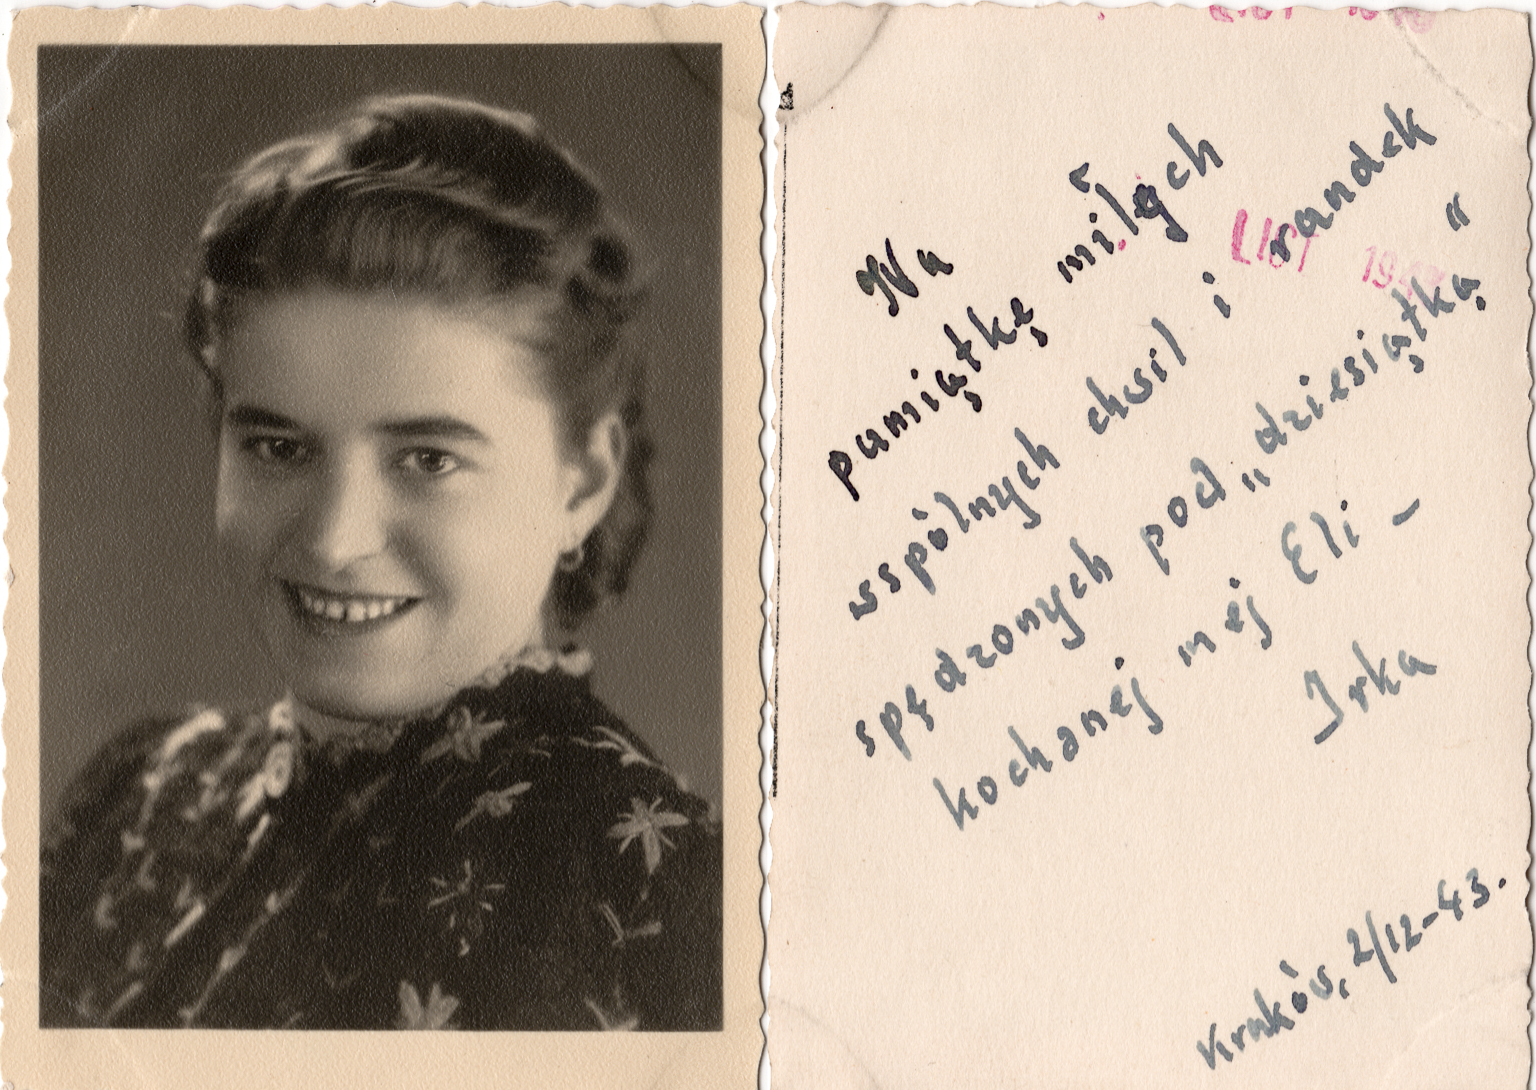 LIST 194
Na
pamiątkę miłych
wspólnych chwil i randek
spędzonych pod „dziesiątką“
kochanej mej Eli –
Irka
Kraków, 2/12–43.